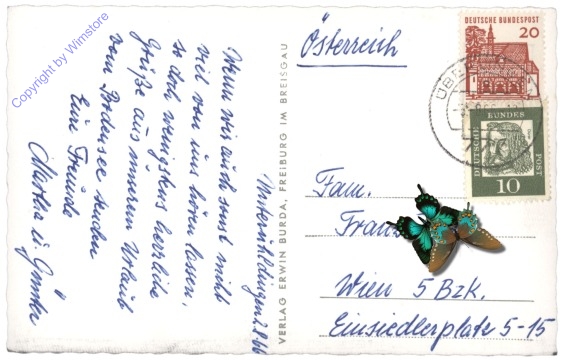 Copyright by Wimstore
Unteruhldingen
Wenn wir auch sonst nicht
viel von uns hören lassen,
so doch wenigstens herzliche
Grüße aus unserem Urlaub
vom Bodensee senden
Eure Freunde
Martha u. Günter
VERLAG ERWIN BURDA, FREIBURG IM BREISGAU
Österreich
DEUTSCHE BUNDESPOST
20
DEUTSCHE BUNDES POST
10
Fam.
Franz
Wien 5 Bzk.
Einsiedlerplatz 5-15